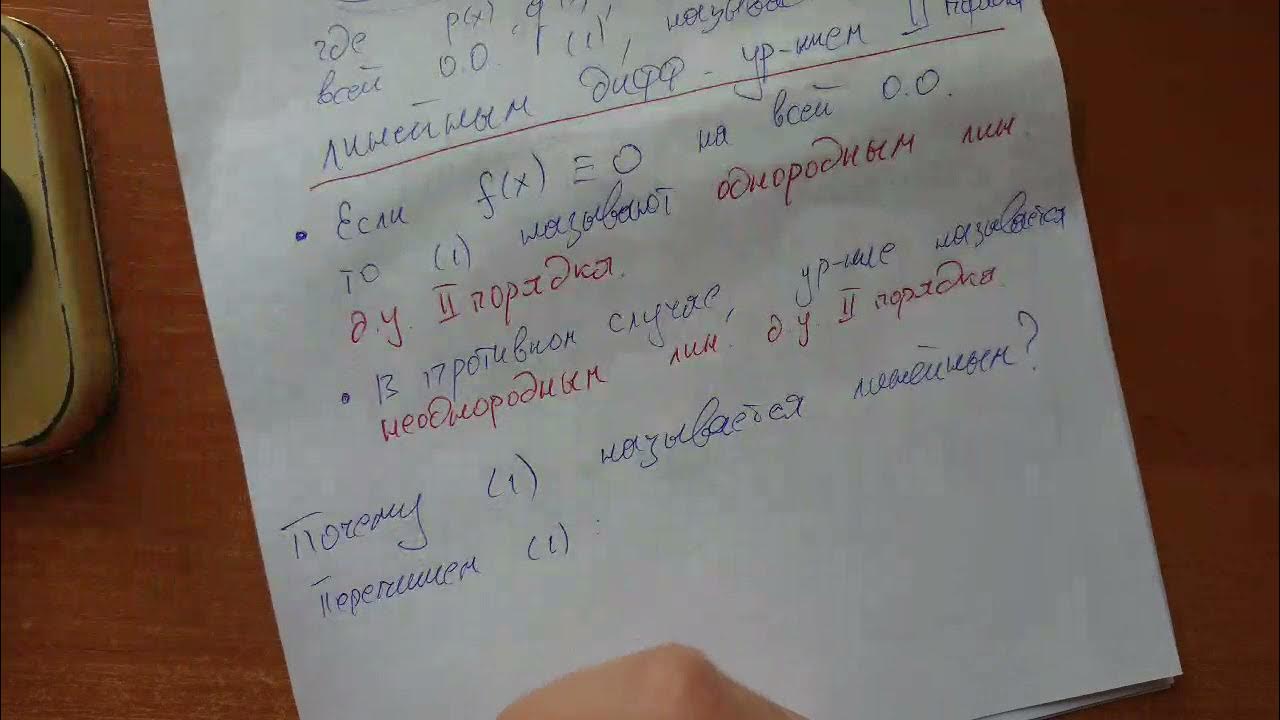 где p(x), q
всей О.О. (1), называ
линейным дифф-ур-нием II порядка
• Если f(x) ≡ 0 на всей О.О.
то (1) называют однородным лин.
д.у. II порядка.
• В противном случае, ур-ние называется
неоднородным лин. д.у. II порядка.
Почему (1) называется линейным?
Перепишем (1) :